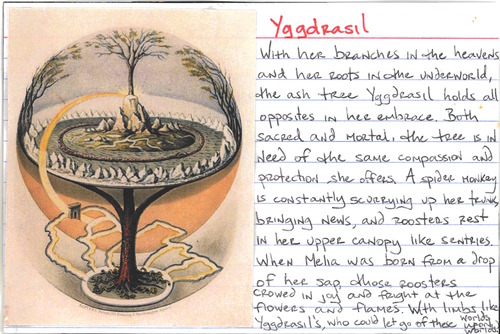 Yggdrasil
With her branches in the heavens
and her roots in the underworld,
the ash tree Yggdrasil holds all
opposites in her embrace. Both
sacred and mortal, the tree is in
need of the same compassion and
protection she offers. A spider monkey
is constantly scurrying up her trunk
bringing news, and roosters rest
in her upper canopy like sentries.
When Melia was born from a drop
of her sap, those roosters
crowed in joy and fright at the
flowers and flames. With limbs like
Yggdrasil's, who could let go of these worlds